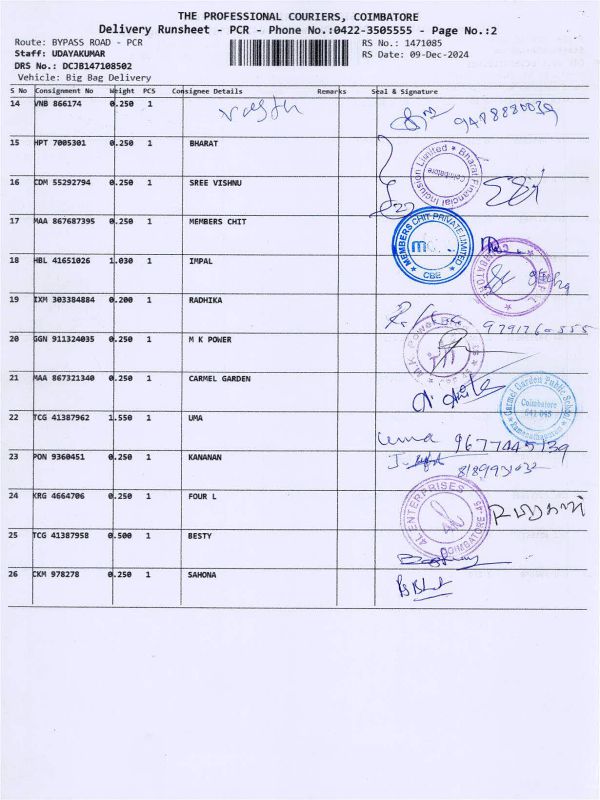 THE PROFESSIONAL COURIERS, COIMBATORE
Delivery Runsheet - PCR - Phone No.:0422-3505555 - Page No.:2
Route: BYPASS ROAD - PCR
RS No.: 1471085
Staff: UDAYAKUMAR
RS Date: 09-Dec-2024
DRS No.: DCJB147108502
Vehicle: Big Bag Delivery
S No Consignment No Weight PCS Consignee Details Remarks Seal & Signature
14 VNB 866174 0.250 1
15 HPT 7005301 0.250 1 BHARAT
Bharat Financial Inclusion Limited * Coimbatore
16 CDM 55292794 0.250 1 SREE VISHNU
17 MAA 867687395 0.250 1 MEMBERS CHIT
MEMBERS CHIT PRIVATE LIMITED * CBE *
18 HBL 41651026 1.030 1 IMPAL
19 IXM 303384884 0.200 1 RADHIKA
9791760555
20 GGN 911324035 0.250 1 M K POWER
M K Power
21 MAA 867321340 0.250 1 CARMEL GARDEN
Carmel Garden Public School
Coimbatore
641 045
22 TCG 41387962 1.550 1 UMA
uma 9677445139
23 PON 9360451 0.250 1 KANANAN
24 KRG 4664706 0.250 1 FOUR L
4L ENTERPRISES * COIMBATORE-45
25 TCG 41387958 0.500 1 BESTY
26 CKM 978278 0.250 1 SAHONA